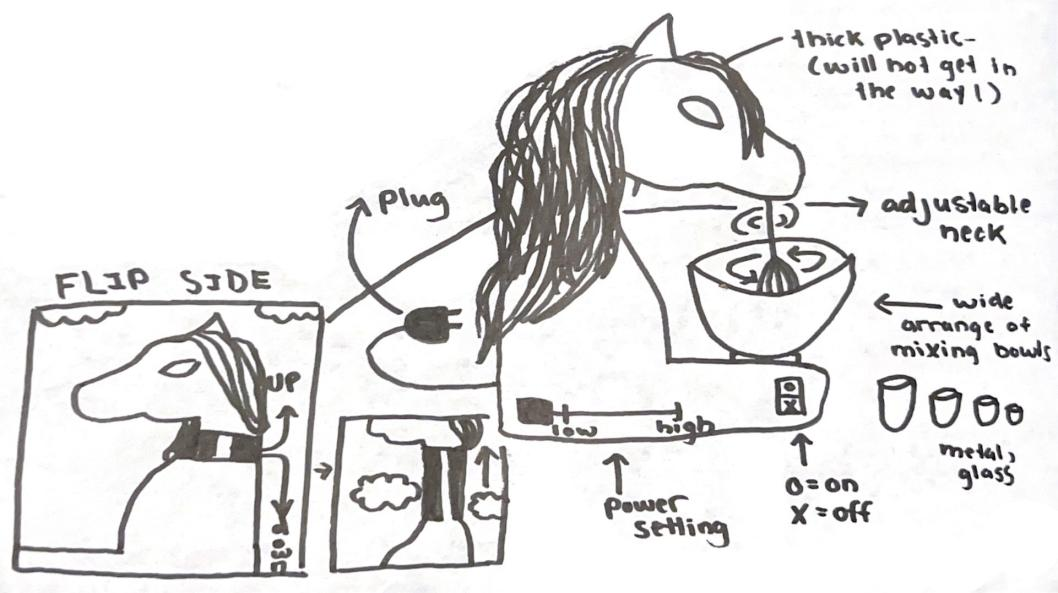 thick plastic-
(will not get in
the way!)
plug
adjustable
neck
FLIP SIDE
UP
wide
arrange of
mixing bowls
metal,
glass
low high
O
X
power
setting
O=on
X=off